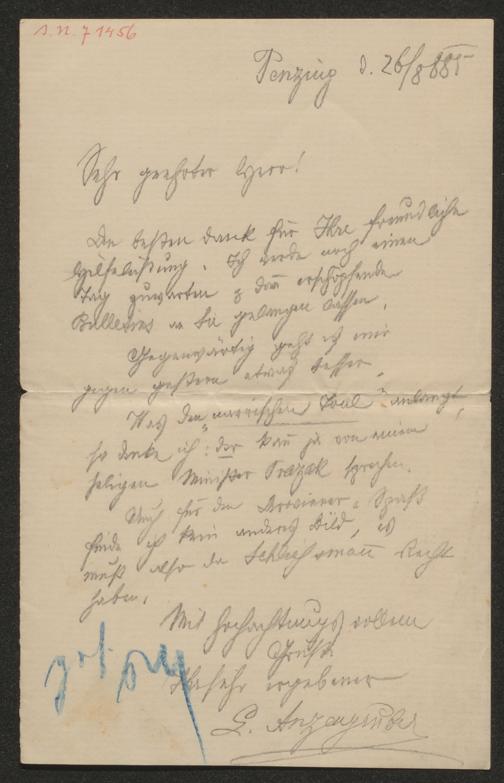 I.N. 71456
Penzing d. 26/8 885
Sehr geehrter Herr!
Den besten Dank für Ihre freundliche
Hilfeleistung. Ich werde noch einen
Tag zuwarten & dann erschöpfende
Bulletins an Sie gelangen lassen.
Gegenwärtig geht es mir
gegen gestern etwas besser.
Was den „narrischen Poul“ anlangt,
so denke ich: der kann ja von einem
seligen Minister Prazak sprechen.
Auch für den Spaß
finde ich kein anderes Bild, es
muß also da Schlichmann Recht
haben.
Mit hochachtungsvollem
Gruße
Ihr sehr ergebener
L. Anzengruber